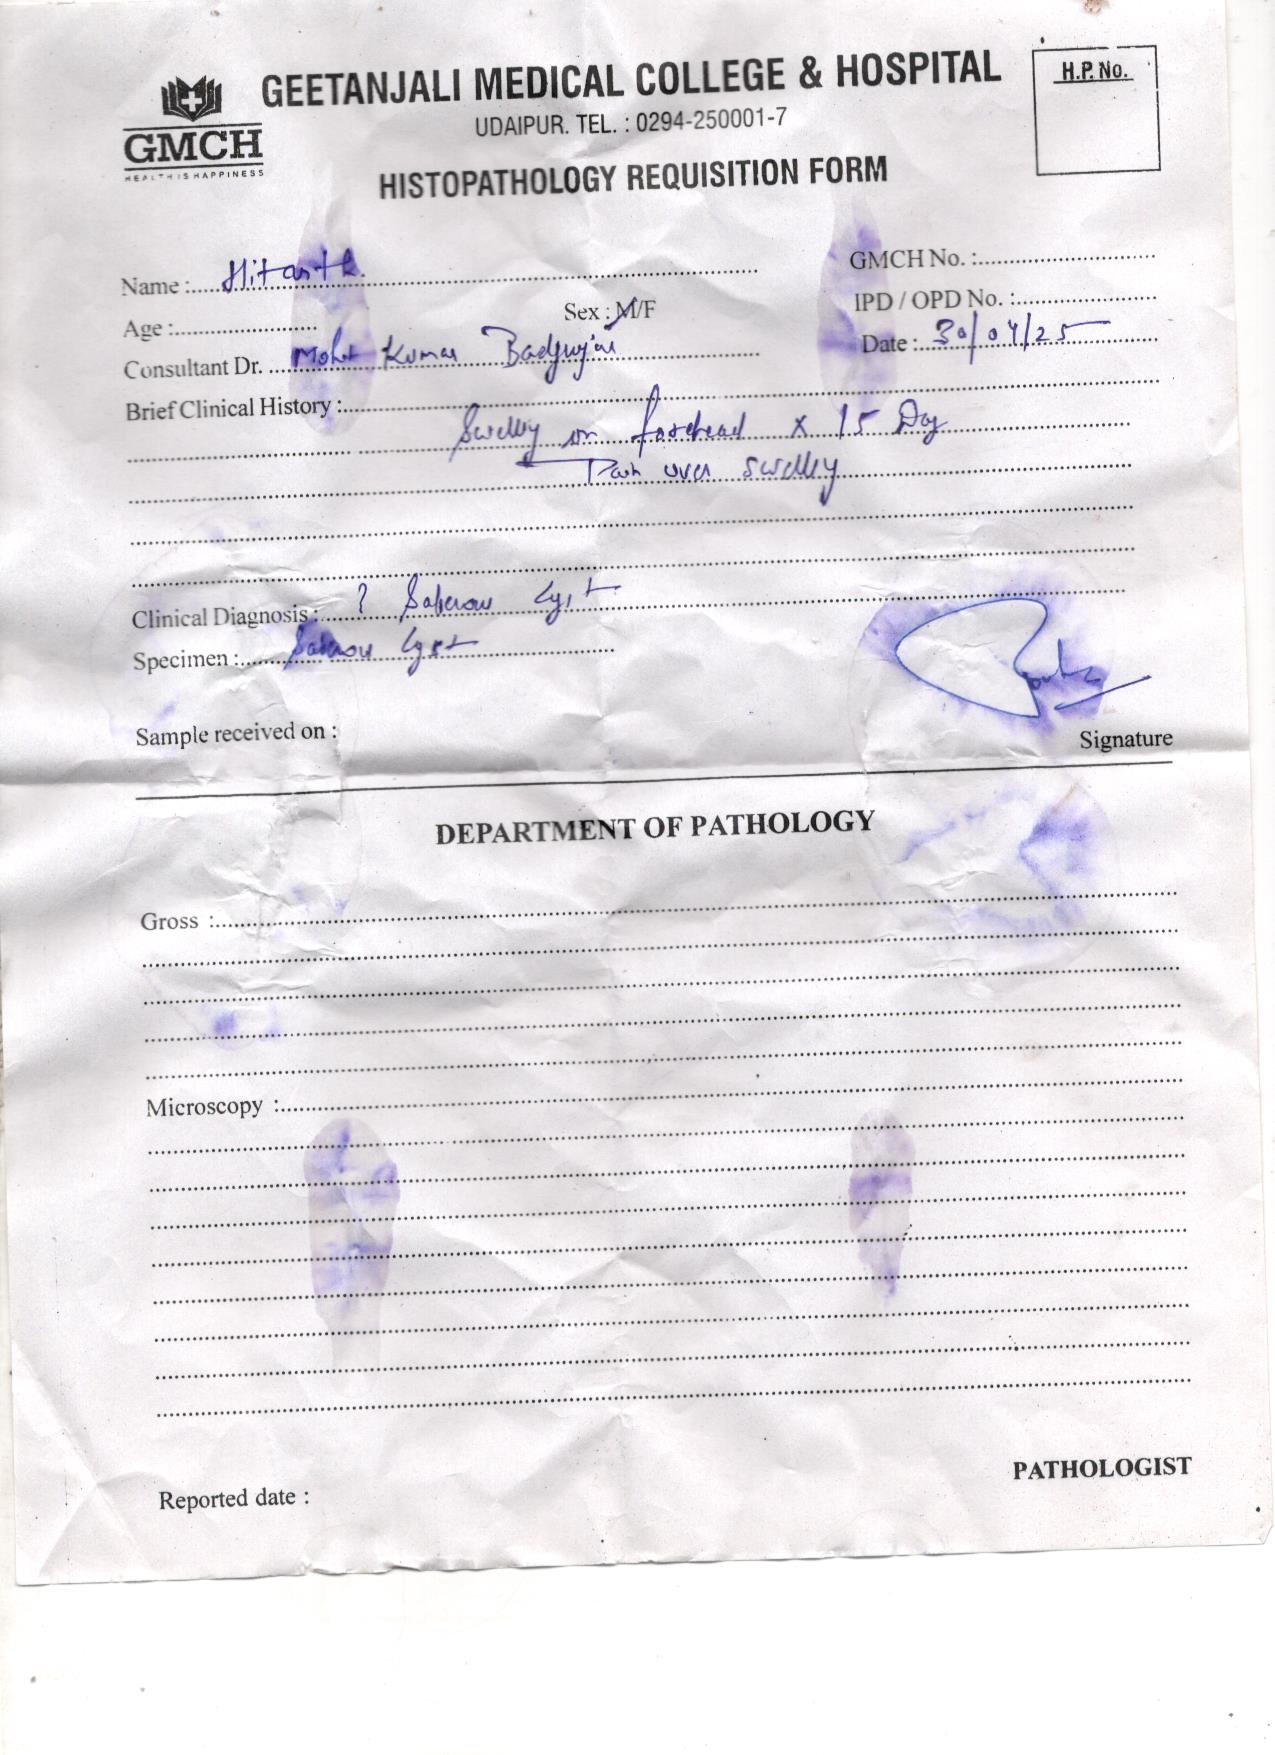 GEETANJALI MEDICAL COLLEGE & HOSPITAL
H.P. No.
UDAIPUR. TEL. : 0294-250001-7
GMCH
HEALTH IS HAPPINESS
HISTOPATHOLOGY REQUISITION FORM
Name : Hitarth.
GMCH No. :
Sex : M/F
IPD / OPD No. :
Age :
Date : 30/04/25
Consultant Dr. Mohit Kumar Badgujar
Brief Clinical History :
Swelling on forehead x 15 Day
Pain over swelling
Clinical Diagnosis : ? Sabecous Cyst
Specimen : Cyst
Sample received on :
Signature
DEPARTMENT OF PATHOLOGY
Gross :
Microscopy :
PATHOLOGIST
Reported date :